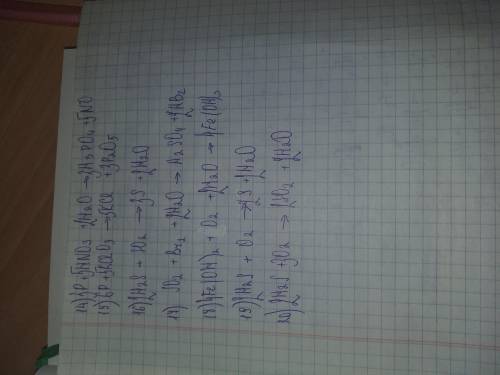 14) 3P + 5HNO3 + 2H2O → 3H3PO4 + 5NO
15) 6P + 5KClO3 → 5KCl + 3P2O5
16) 2H2S + SO2 → 3S + 2H2O
17) SO2 + Br2 + 2H2O → H2SO4 + 2HBr
18) 4Fe(OH)2 + O2 + 2H2O → 4Fe(OH)3
19) 2H2S + O2 → 2S + 2H2O
20) 2H2S + 3O2 → 2SO2 + 2H2O